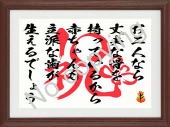 お二人なら
丈夫な を
持っているから
赤ちゃんも
立派な歯が
生えるでしょう
祝